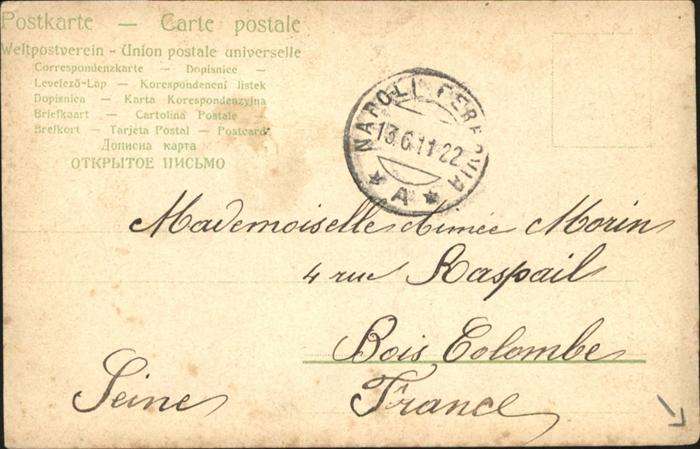 Postkarte — Carte postale
Weltpostverein - Union postale universelle
Correspondenzkarte — Dopisnice —
Levelező-Lap — Korespondencni listek
Dopisnica — Karta Korespondenzyjna
Briefkaart — Cartolina Postale
Brefkort — Tarjeta Postal — Postcard
Дописна карта
ОТКРЫТОЕ ПИСЬМО
NAPOLI FERROVIA
13.6.11.22
* A *
Mademoiselle Aimée Morin
4 rue Raspail
Bois Colombe
Seine France